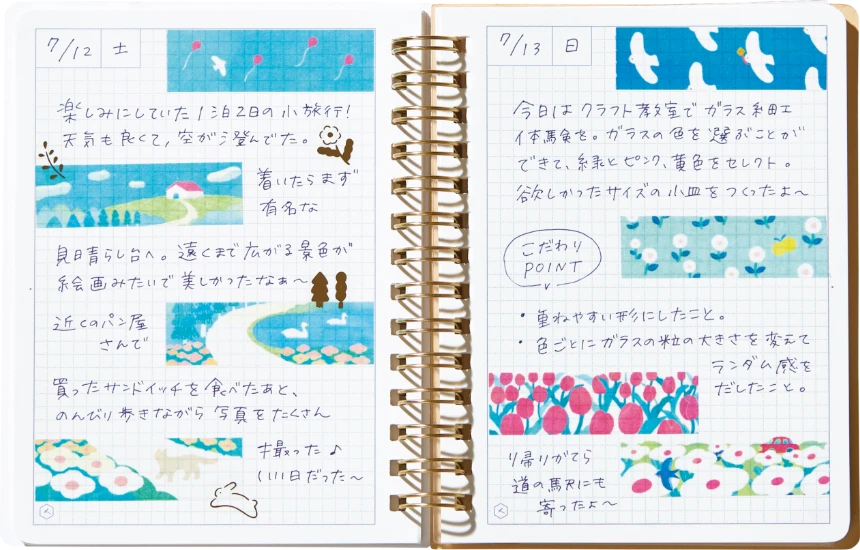 7/12 土
楽しみにしていた1泊2日の小旅行!
天気も良くて、空が澄んでた。
着いたらまず
有名な
見晴らし台へ。遠くまで広がる景色が
絵画みたいで美しかったなぁ〜
近くのパン屋
さんで
買ったサンドイッチを食べたあと、
のんびり歩きながら写真をたくさん
撮った♪
いい日だった〜
7/13 日
今日はクラフト教室でガラス細工
体験を。ガラスの色を選ぶことが
できて、緑とピンク、黄色をセレクト。
欲しかったサイズの小皿をつくったよ〜
こだわり
POINT
・重ねやすい形にしたこと。
・色ごとにガラスの粒の大きさを変えて
ランダム感を
だしたこと。
帰りがてら
道の駅にも
寄ったよ〜